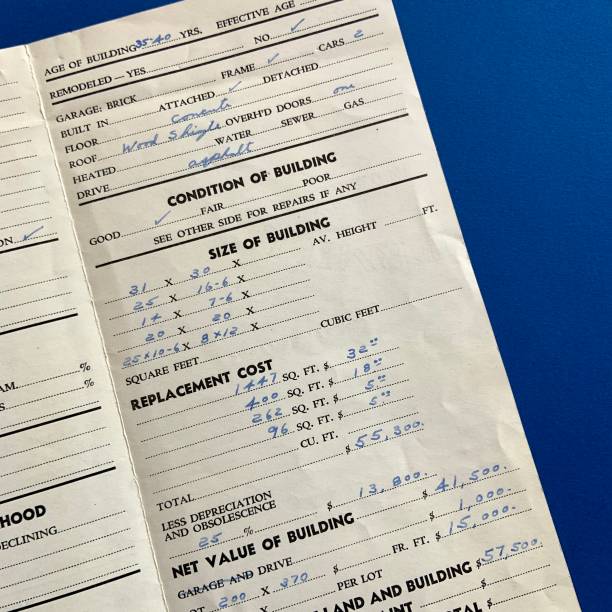 AGE OF BUILDING 35-40 YRS. EFFECTIVE AGE
REMODELED — YES NO ✓
GARAGE: BRICK FRAME ✓ CARS 2
BUILT IN ATTACHED ✓ DETACHED
FLOOR Concrete
ROOF Wood Shingle OVERH'D DOORS one
HEATED WATER SEWER GAS
DRIVE asphalt
CONDITION OF BUILDING
GOOD ✓ FAIR POOR
SEE OTHER SIDE FOR REPAIRS IF ANY
SIZE OF BUILDING
31 X 30 X AV. HEIGHT FT.
25 X 16-6 X
14 X 7-6 X
20 X 20 X
25x10-6 X 8x12 X
SQUARE FEET CUBIC FEET
REPLACEMENT COST
1447 SQ. FT. $ 32.00
400 SQ. FT. $ 18.00
262 SQ. FT. $ 5.00
96 SQ. FT. $ 5.00
CU. FT.
TOTAL $ 55,300.
LESS DEPRECIATION
AND OBSOLESCENCE
25 % $ 13,800.
NET VALUE OF BUILDING $ 41,500.
GARAGE AND DRIVE $ 1,000.
200 X 370 $ FR. FT. $ 15,000.
X PER LOT
LAND AND BUILDING $57,500.
$
ON ✓
%
%
HOOD
DECLINING